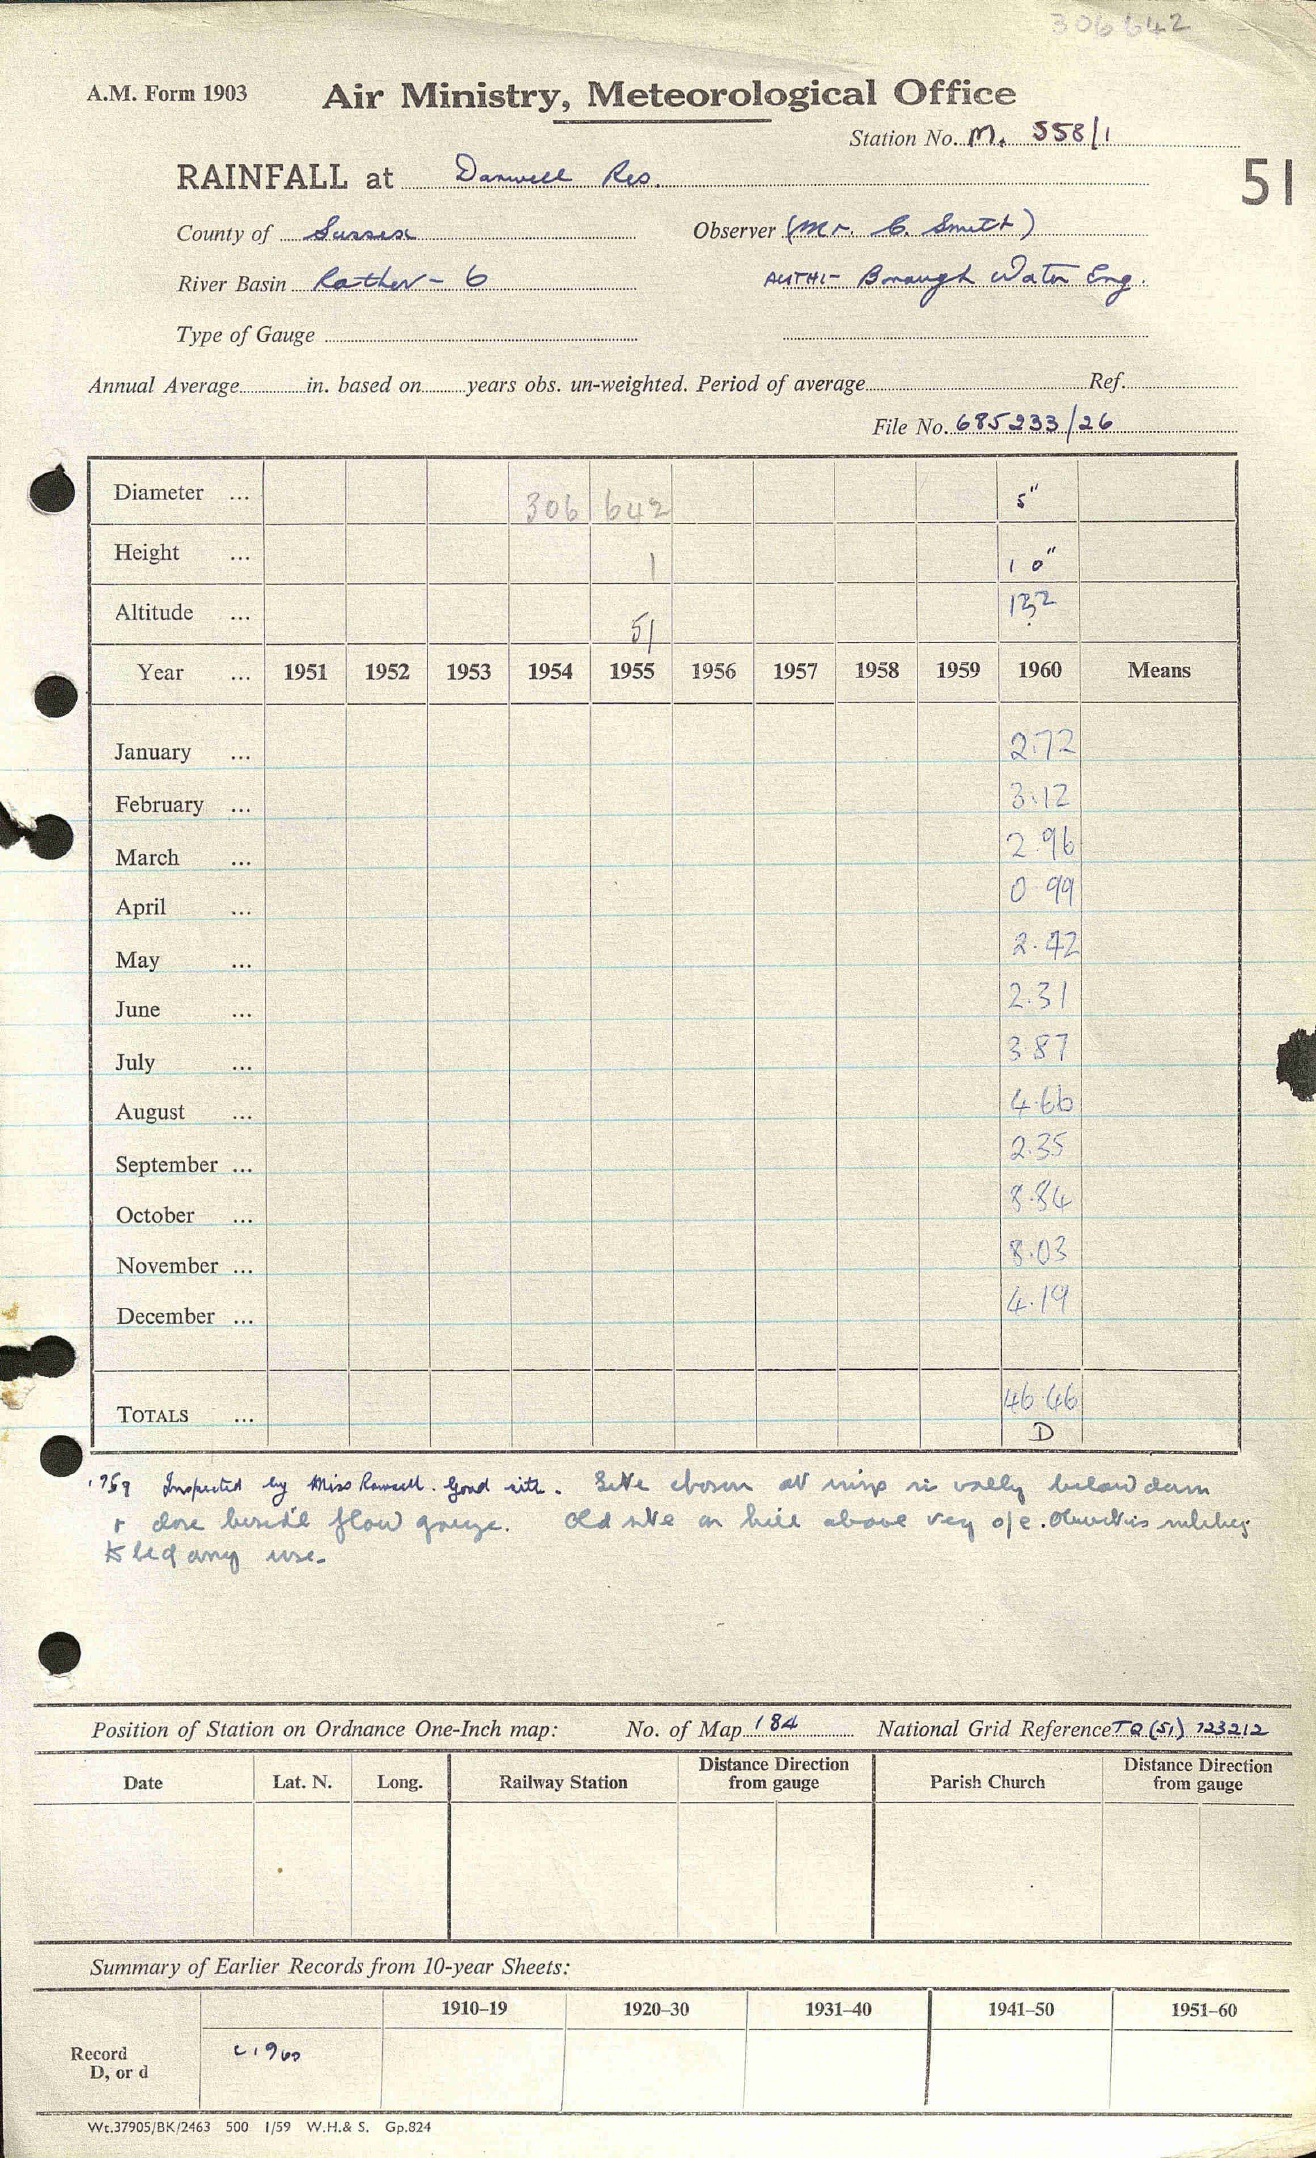 306642
A.M. Form 1903
Air Ministry, Meteorological Office
Station No. M. 558/1
51
RAINFALL at Darwell Res.
County of Sussex Observer (Mr. C. Smith)
River Basin Rother - 6 AUTH:- Borough Water Eng.
Type of Gauge
Annual Average in. based on years obs. un-weighted. Period of average Ref.
File No. 685233/26
Diameter ... 306 642 5"
Height ... 1 1 0"
Altitude ... 51 132
Year ... 1951 1952 1953 1954 1955 1956 1957 1958 1959 1960 Means
January ... 2.72
February ... 3.12
March ... 2.96
April ... 0.99
May ... 2.42
June ... 2.31
July ... 3.87
August ... 4.66
September ... 2.35
October ... 8.84
November ... 8.03
December ... 4.19
TOTALS ... 46.46
D
1959 Inspected by Miss Rowsell. Good site. Site chosen at in vally below dam
+ close beside flow gauge. Old site on hill above very o/e.
any use.
Position of Station on Ordnance One-Inch map: No. of Map 184 National Grid Reference TQ (51) 723212
Date Lat. N. Long. Railway Station Distance Direction from gauge Parish Church Distance Direction from gauge
Summary of Earlier Records from 10-year Sheets:
1910–19 1920–30 1931–40 1941–50 1951–60
Record
D, or d c1960
Wt.37905/BK/2463 500 1/59 W.H.& S. Gp.824